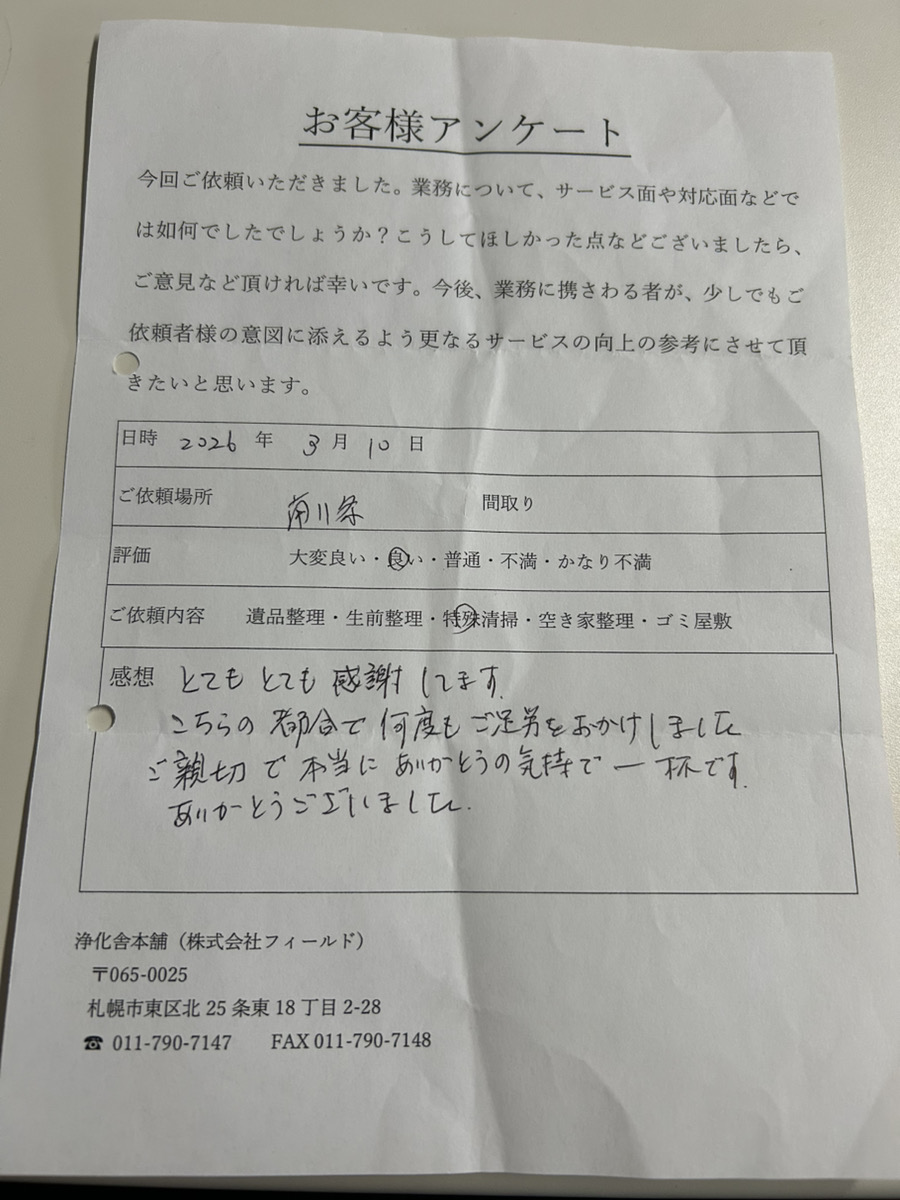 お客様アンケート
今回ご依頼いただきました。業務について、サービス面や対応面などで
は如何でしたでしょうか？こうしてほしかった点などございましたら、
ご意見など頂ければ幸いです。今後、業務に携さわる者が、少しでもご
依頼者様の意図に添えるよう更なるサービスの向上の参考にさせて頂
きたいと思います。
日時 2026 年 3 月 10 日
ご依頼場所 南川条 間取り
評価 大変良い・良い・普通・不満・かなり不満
ご依頼内容 遺品整理・生前整理・特殊清掃・空き家整理・ゴミ屋敷
感想 とてもとても感謝してます.
こちらの都合で何度もご足労をおかけしました
ご親切で本当にありがとうの気持で一杯です.
ありがとうございました.
浄化舎本舗（株式会社フィールド）
〒065-0025
札幌市東区北 25 条東 18 丁目 2-28
☎ 011-790-7147 FAX 011-790-7148